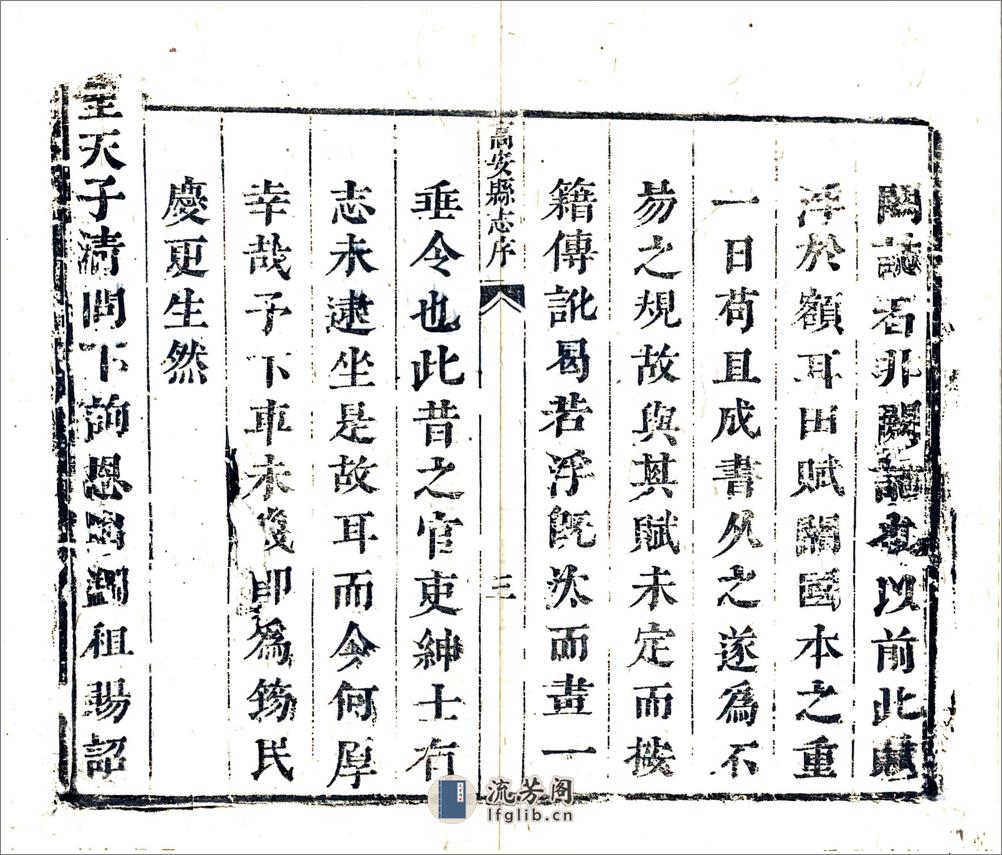 闕誌者非闕記也以前此
浮於額耳田賦關國本之重
一日苟且成書久之遂為不
易之規故與其賦未定而披
籍傳訛曷若浮旣汰而畫一
高安縣志序
三
垂令也此昔之官吏紳士有
志未逮坐是故耳而今何厚
幸哉予下車未幾即為筠民
慶更生然
聖天子清問下詢恩蠲租賜詔
流芳阁
lfglib.cn